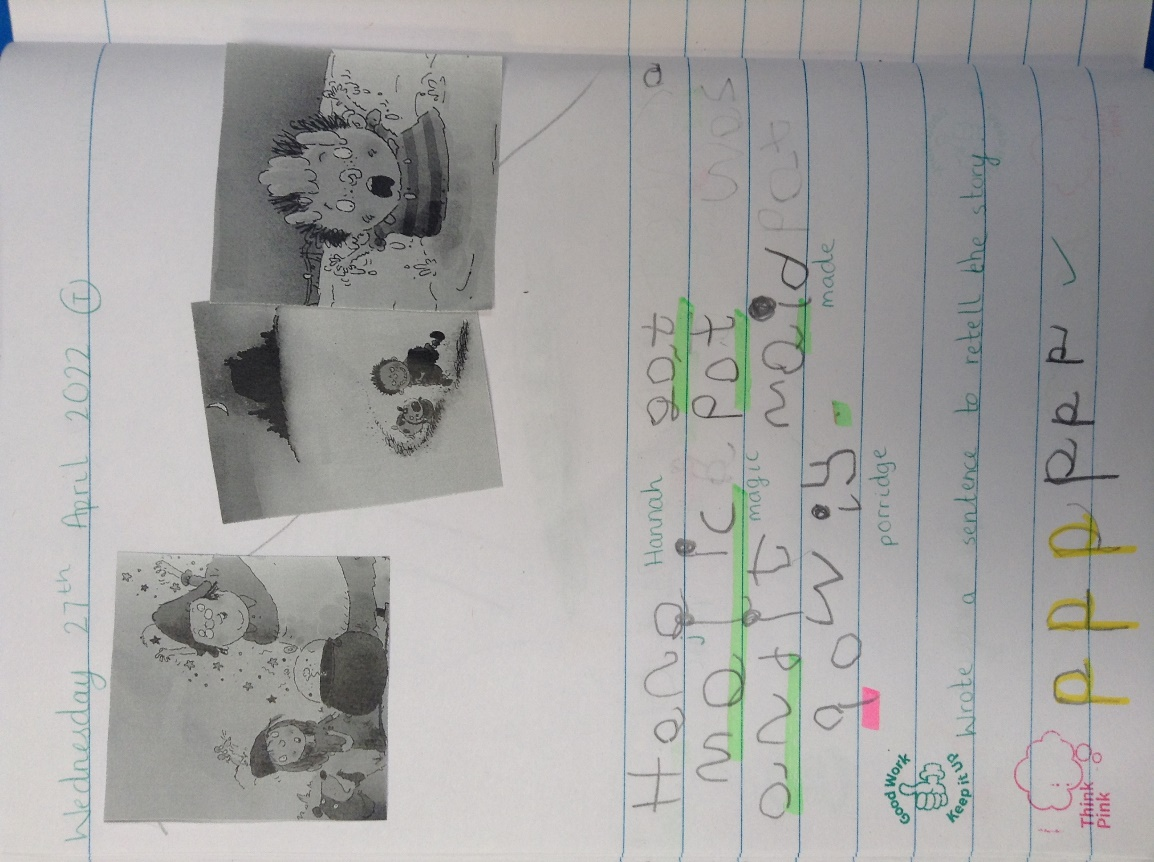 Wednesday 27th April 2022 I
Hana Hannah got a
majic pot was
magic
and it maid pat
made
porridge
Good Work
Keep it up
Wrote a sentence to retell the story
Think
Pink
p p p p p p ✓